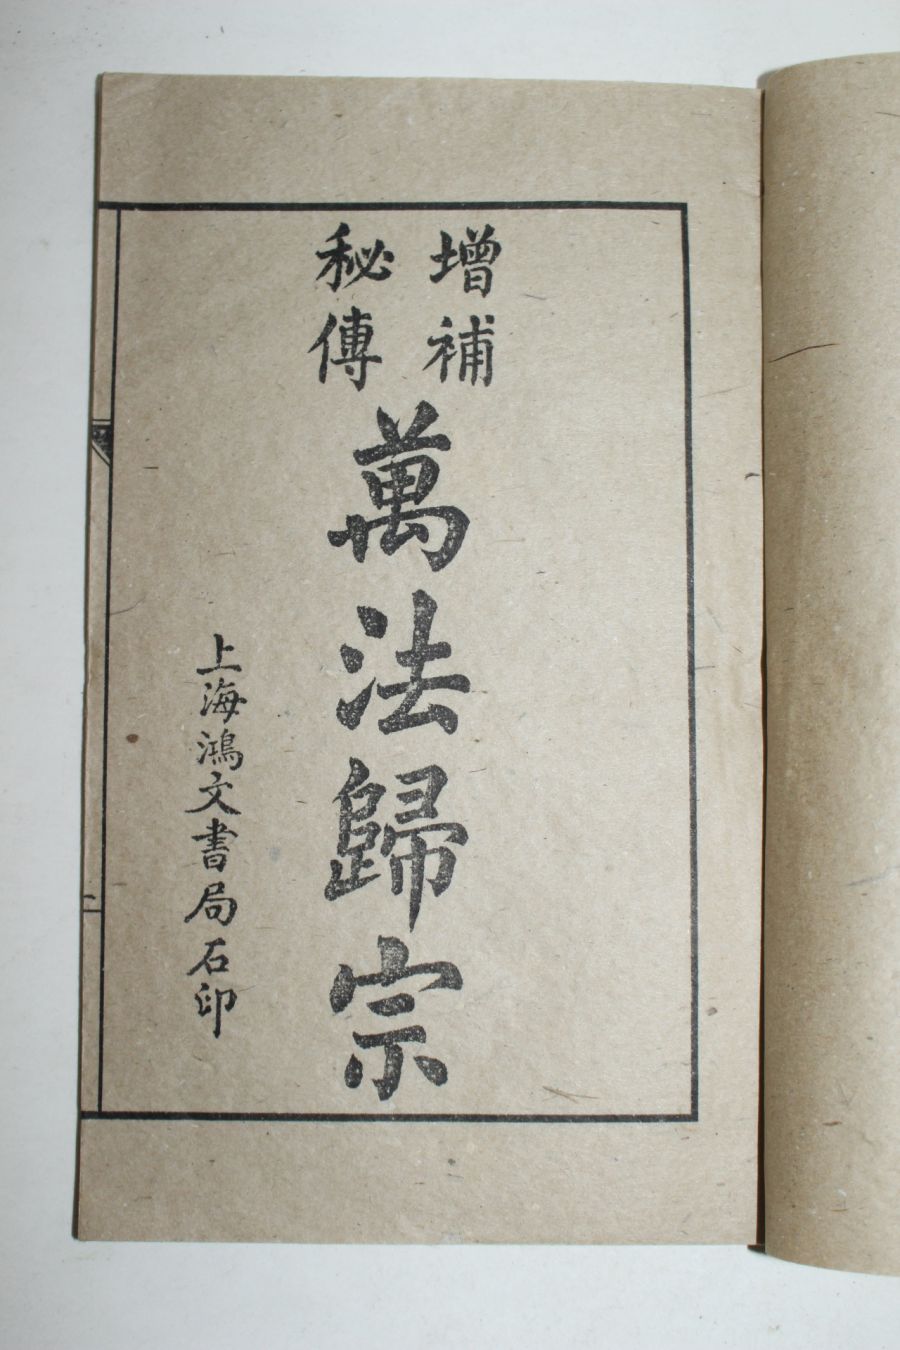 增補
秘傳
萬法歸宗
上海鴻文書局石印